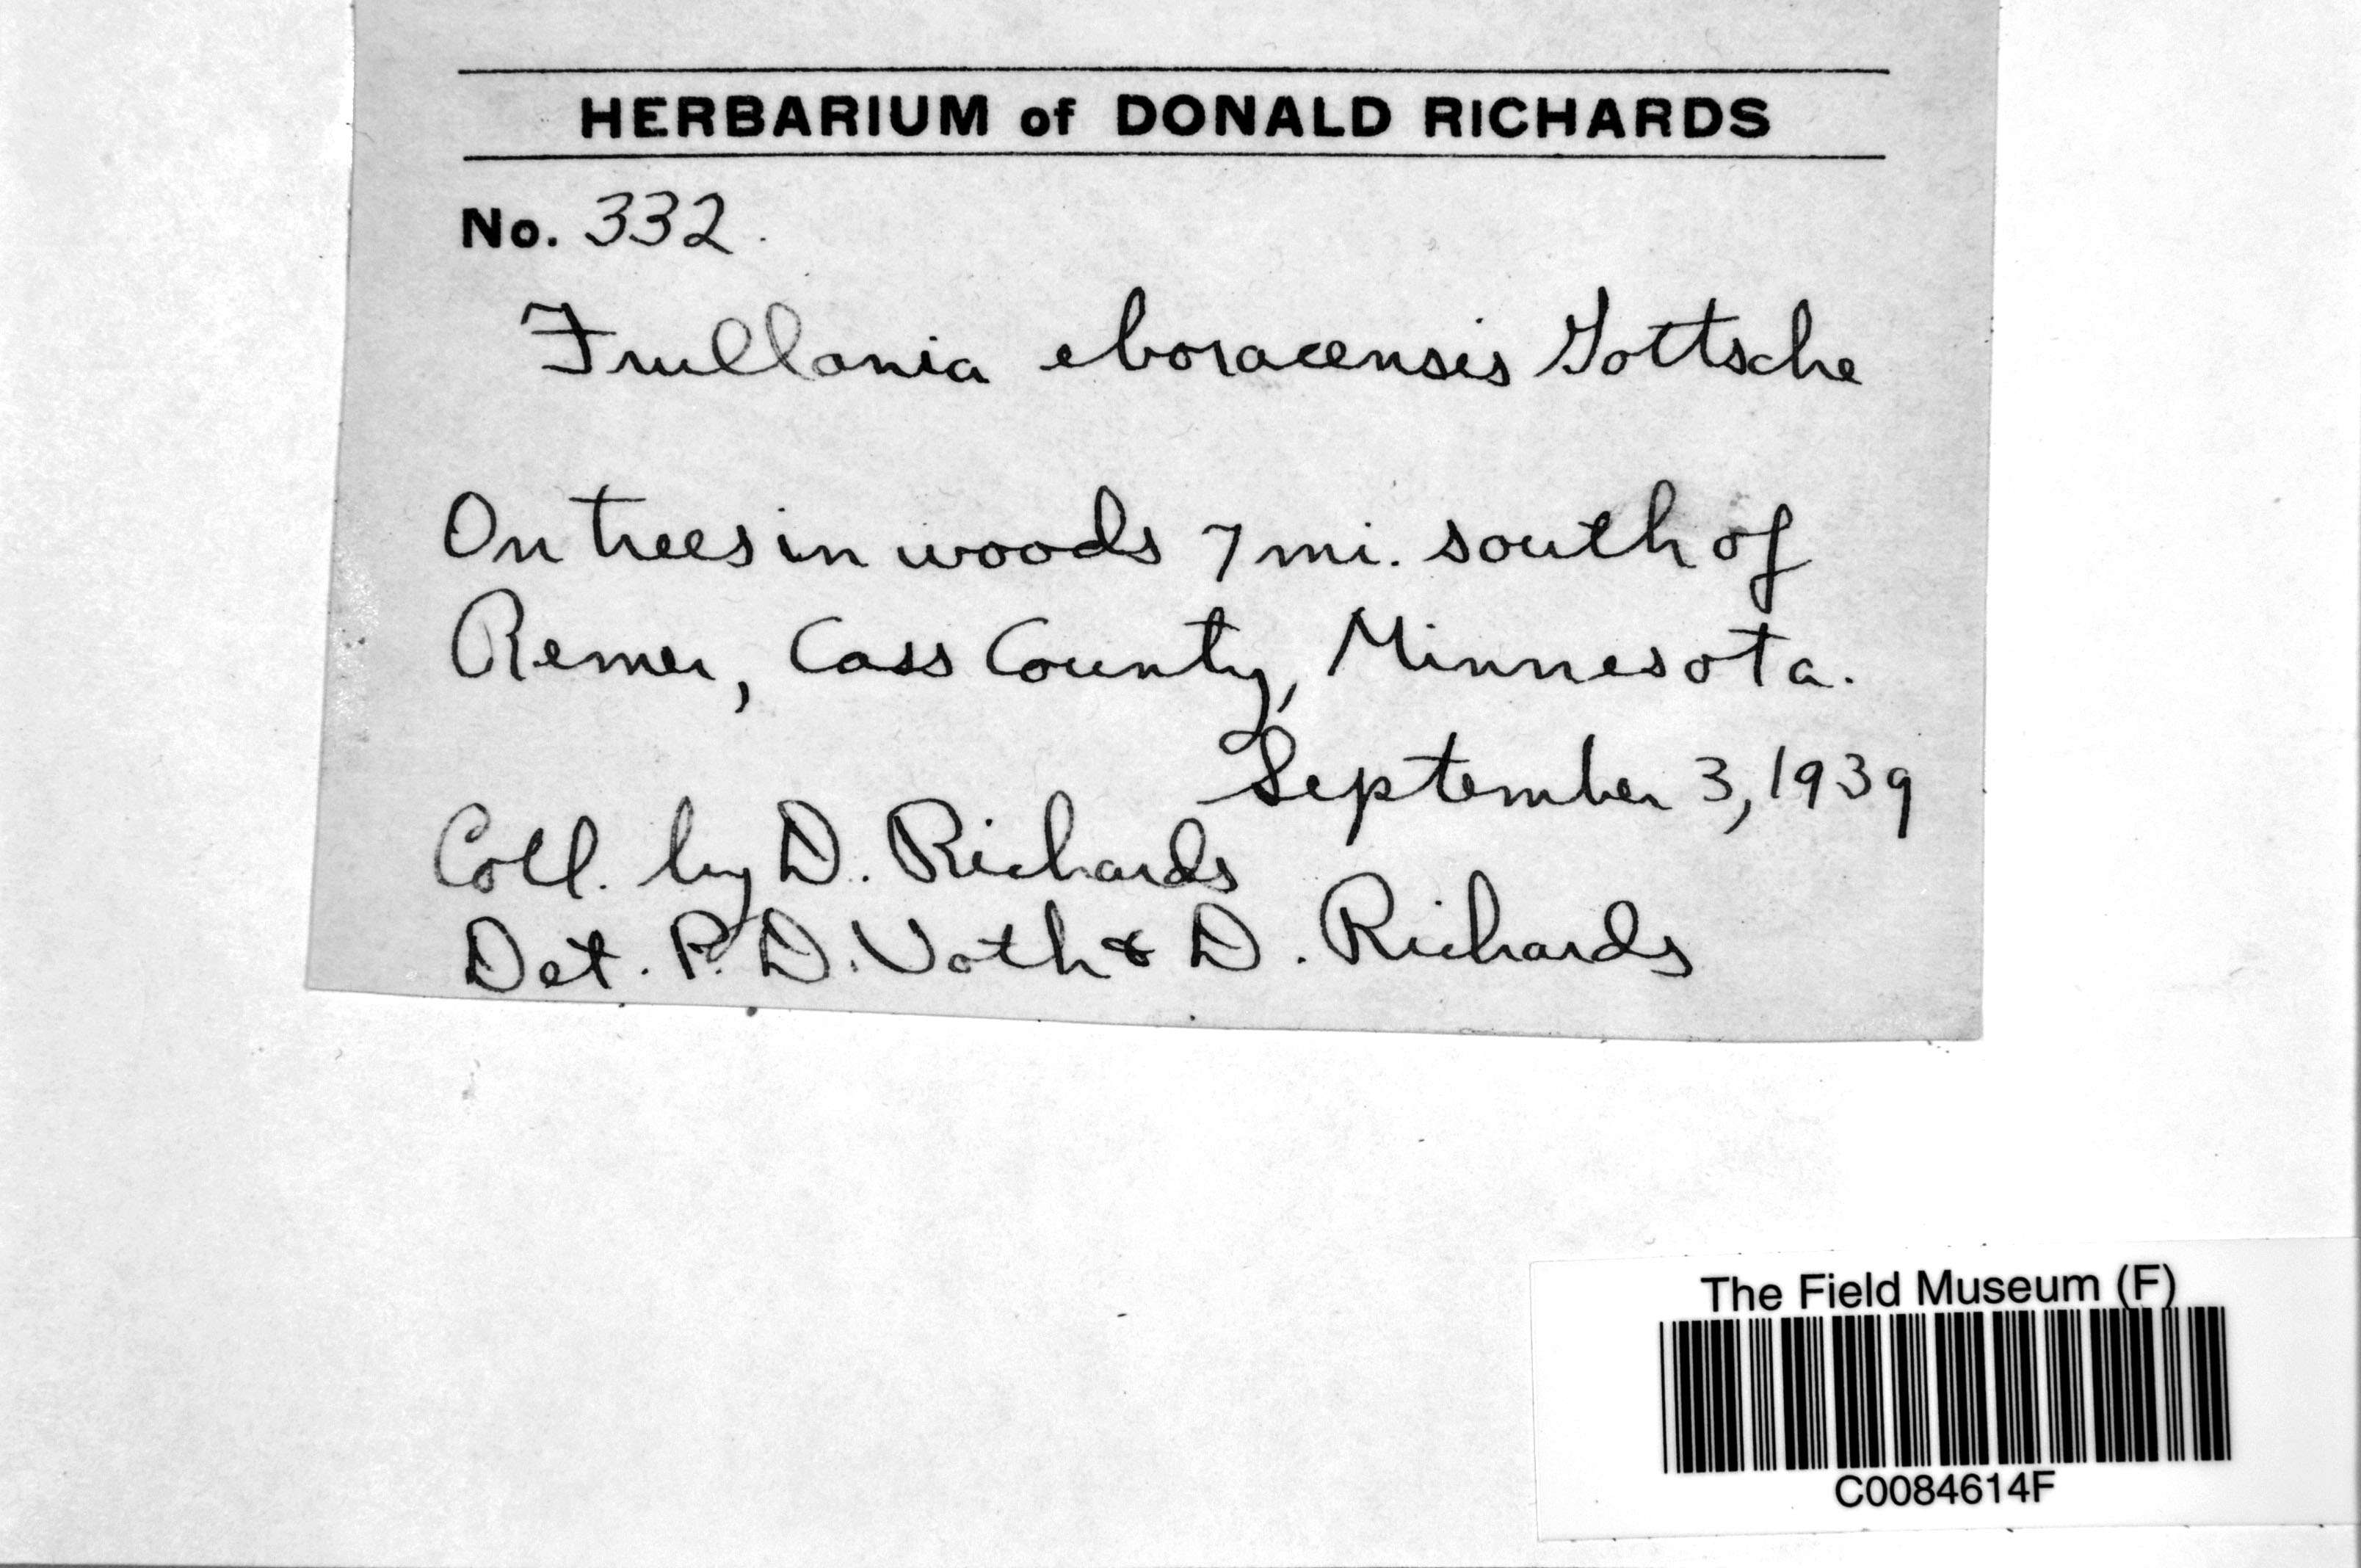 HERBARIUM of DONALD RICHARDS
No. 332.
Frullania eboracensis Gottsche
On trees in woods 7 mi. south of
Remer, Cass County, Minnesota.
September 3, 1939
Coll. by D. Richards
Det. P. D. Voth & D. Richards
The Field Museum (F)
C0084614F